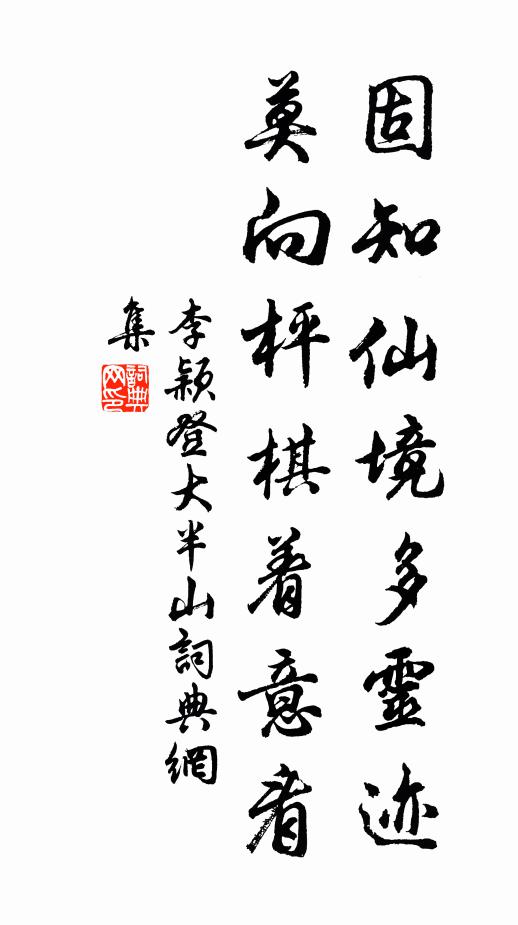 固知仙境多靈迹
莫向枰棋着意看
李颖登大半山詞典網
集
詞典网印